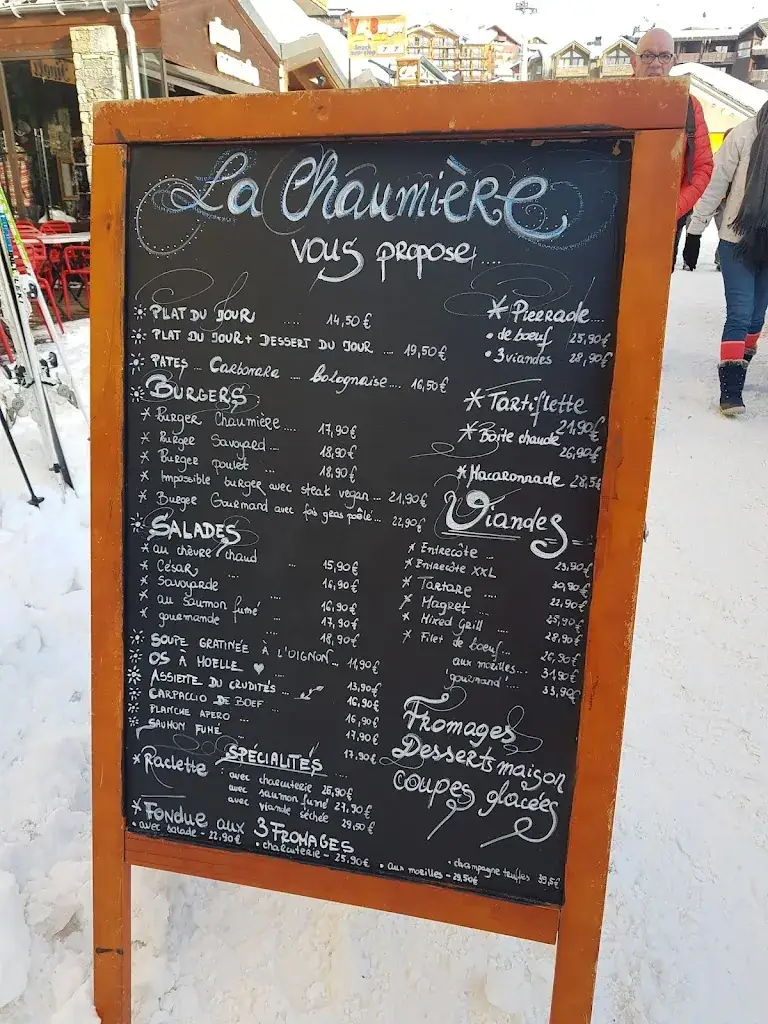 La Chaumière
vous propose....
PLAT DU JOUR .... 14,50€
PLAT DU JOUR + DESSERT DU JOUR ... 19,50€
PATES ... Carbonara .... bolognaise.... 16,50€
BURGERS
Burger Chaumière.... 17,90€
Burger Savoyard... 18,90€
Burger poulet ... 18,90€
Impossible burger avec steak vegan... 21,90€
Burger Gourmand avec fois gras poêlé... 22,90€
SALADES
au chèvre chaud ... 15,90€
César ... 16,90€
Savoyarde ... 16,90€
au saumon fumé ... 17,90€
gourmande ... 18,90€
SOUPE GRATINÉE À L'OIGNON... 11,90€
OS À MOELLE ... 13,90€
ASSIETTE DU CRUDITÉS ... 16,90€
CARPACCIO DE BOEF 16,90€
PLANCHE APERO ... 17,90€
SAUMON FUMÉ ... 17,90€
SPÉCIALITÉS
Raclette
avec charcuterie 26,90€
avec saumon fumé 27,90€
avec viande séchée 29,50€
Fondue aux 3 FROMAGES
• avec salade - 22,90€ • charcuterie - 25,90€ • aux morilles - 29,50€ • champagne truffes
Pierrade...
• de bœuf 25,90€
• 3 viandes 28,90€
Tartiflette
21,90€
Boite chaude
26,90€
Macaronnade 28,5€
Viandes
Entrecôte ... 23,90€
Entrecôte XXL 30,90€
Tartare .... 22,90€
Magret ... 25,90€
Mixed Grill .... 28,90€
Filet de boeuf... 26,90€
aux morilles... 31,90€
"gourmand".... 33,90€
Fromages
Desserts maison
coupes glacées